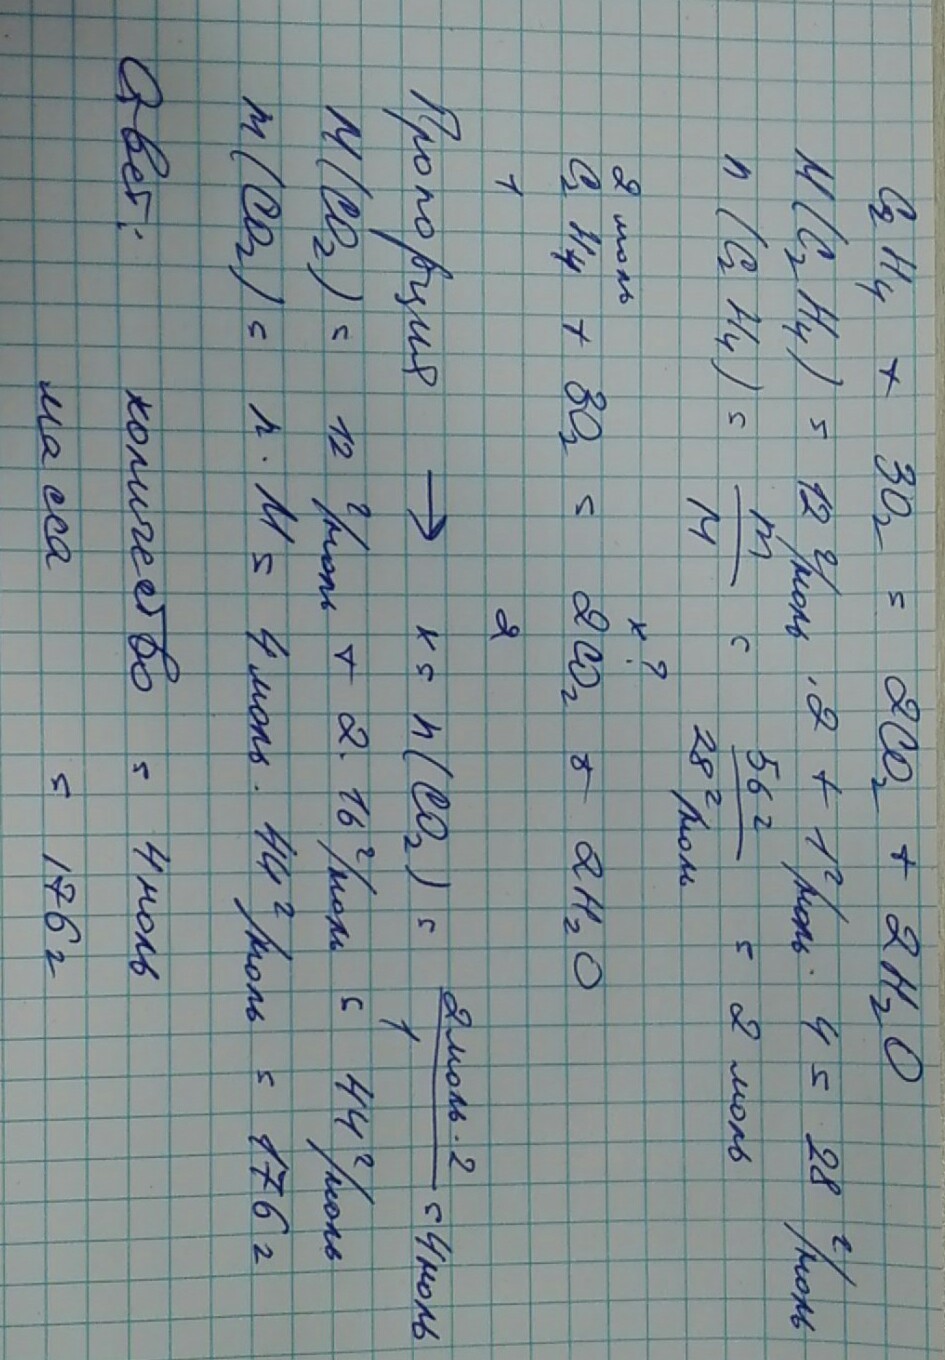 C2H4 + 3O2 = 2CO2 + 2H2O
M(C2H4) = 12 г/моль · 2 + 1 г/моль · 4 = 28 г/моль
n(C2H4) = m/M = 56 г / 28 г/моль = 2 моль
2 моль x?
C2H4 + 3O2 = 2CO2 + 2H2O
1 2
Пропорция → x = n(CO2) = 2 моль · 2 / 1 = 4 моль
M(CO2) = 12 г/моль + 2 · 16 г/моль = 44 г/моль
m(CO2) = n · M = 4 моль · 44 г/моль = 176 г
Ответ: количество = 4 моль
масса = 176 г